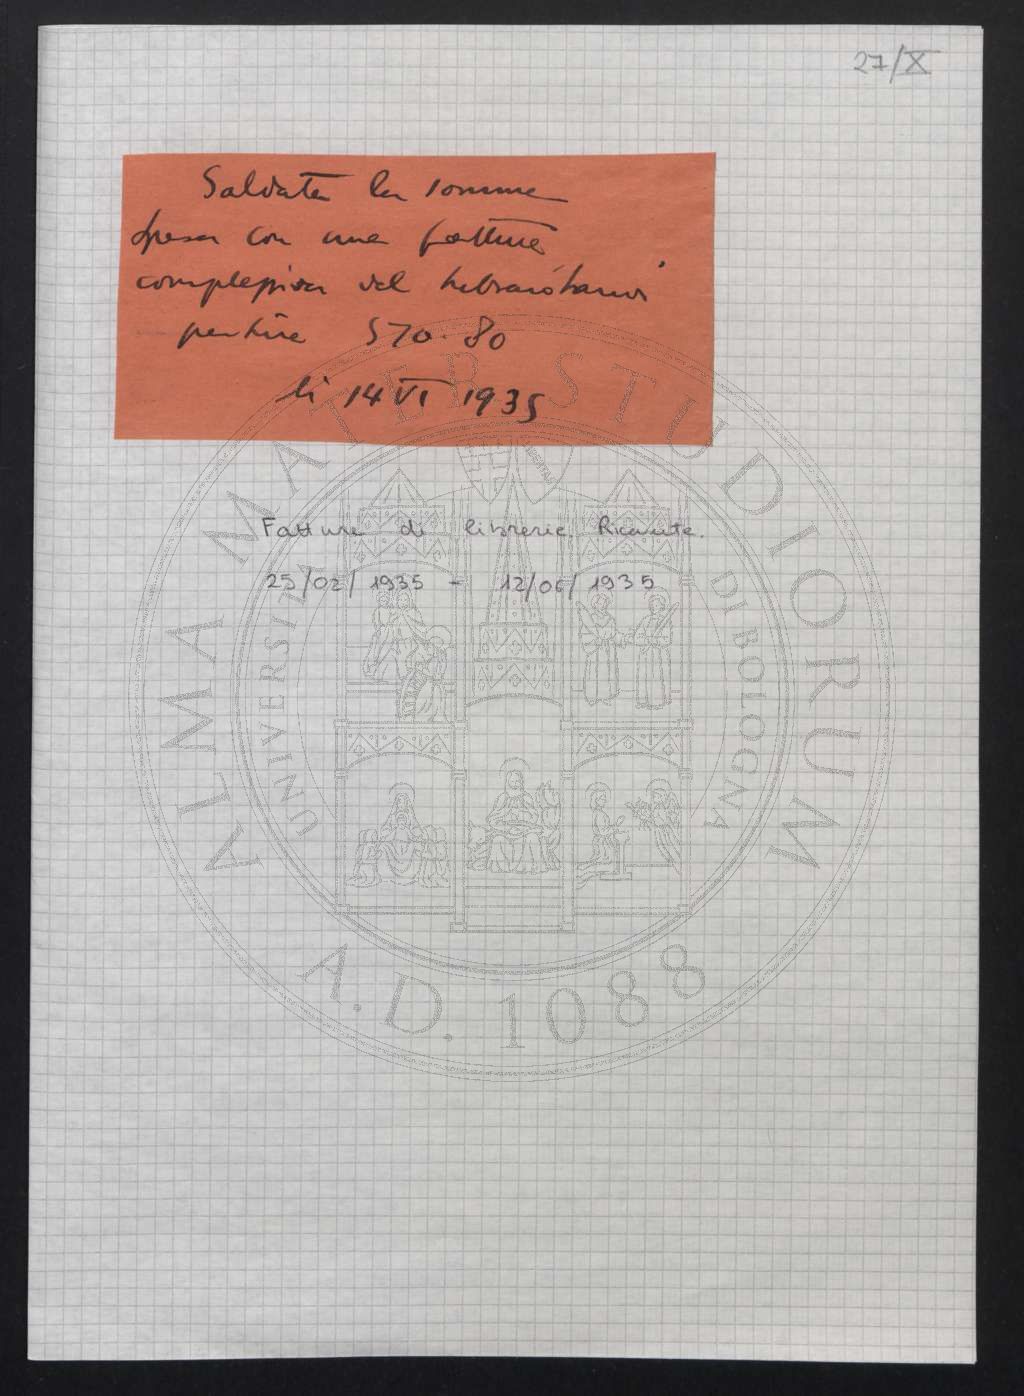 27/X
Saldata la somma
spesa con una fattura
complessiva del
per lire 570.80
li 14 VI 1935
Fatture di librerie. Ricevute.
25/02/1935 - 12/06/1935
ALMA MATER STUDIORUM
UNIVERSITÀ DI BOLOGNA
A.D. 1088